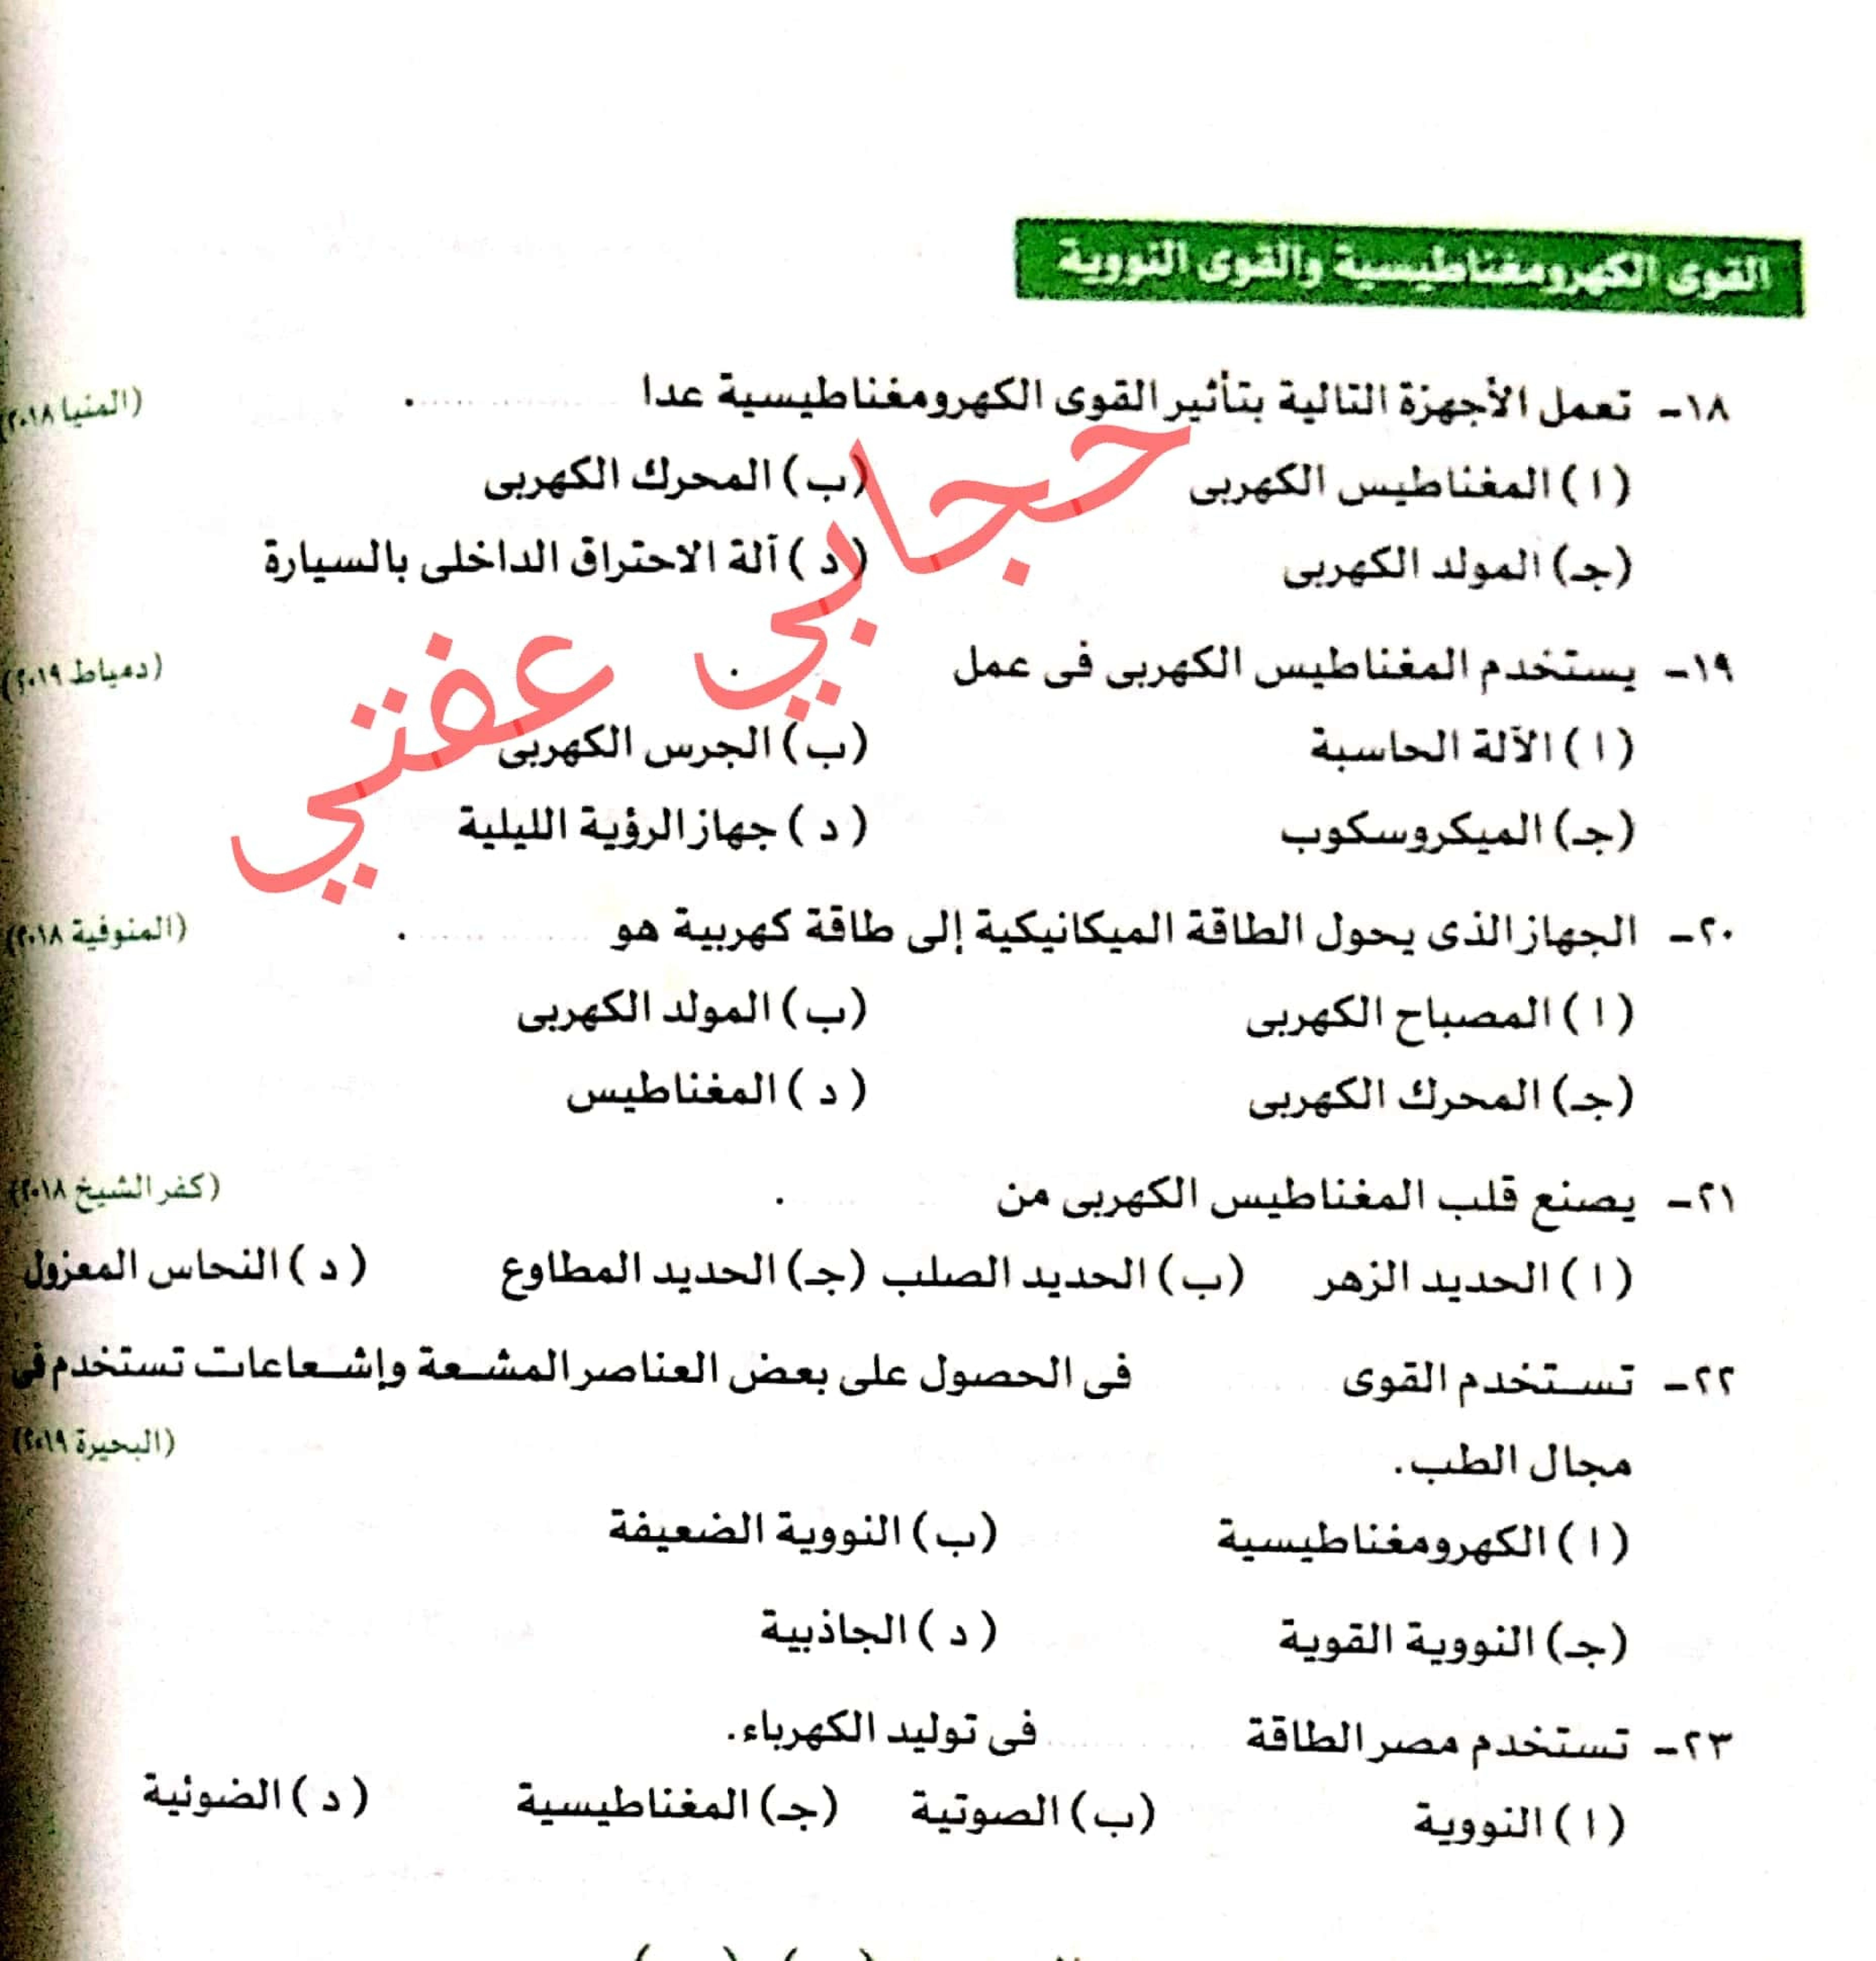 القوى الكهرومغناطيسية والقوى النووية
١٨- تعمل الأجهزة التالية بتأثير القوى الكهرومغناطيسية عدا .......... . (المنيا ٢٠١٨)
(ا) المغناطيس الكهربى (ب) المحرك الكهربى
(جـ) المولد الكهربى (د) آلة الاحتراق الداخلى بالسيارة
١٩- يستخدم المغناطيس الكهربى فى عمل . (دمياط ٢٠١٩)
(ا) الآلة الحاسبة (ب) الجرس الكهربى
(جـ) الميكروسكوب (د) جهاز الرؤية الليلية
٢٠- الجهاز الذى يحول الطاقة الميكانيكية إلى طاقة كهربية هو .......... . (المنوفية ٢٠١٨)
(ا) المصباح الكهربى (ب) المولد الكهربى
(جـ) المحرك الكهربى (د) المغناطيس
٢١- يصنع قلب المغناطيس الكهربى من . (كفر الشيخ ٢٠١٨)
(ا) الحديد الزهر (ب) الحديد الصلب (جـ) الحديد المطاوع (د) النحاس المعزول
٢٢- تستخدم القوى .......... فى الحصول على بعض العناصر المشعة وإشعاعات تستخدم فى
مجال الطب. (البحيرة ٢٠١٩)
(ا) الكهرومغناطيسية (ب) النووية الضعيفة
(جـ) النووية القوية (د) الجاذبية
٢٣- تستخدم مصر الطاقة .......... فى توليد الكهرباء.
(ا) النووية (ب) الصوتية (جـ) المغناطيسية (د) الضوئية
حجابي عفتي